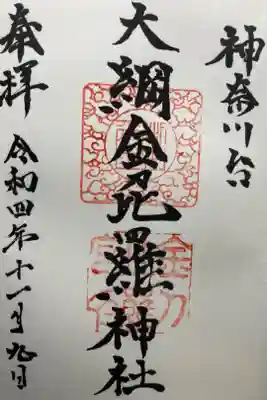 神奈川台
大綱金毘羅神社
奉拝 令和四年十一月九日